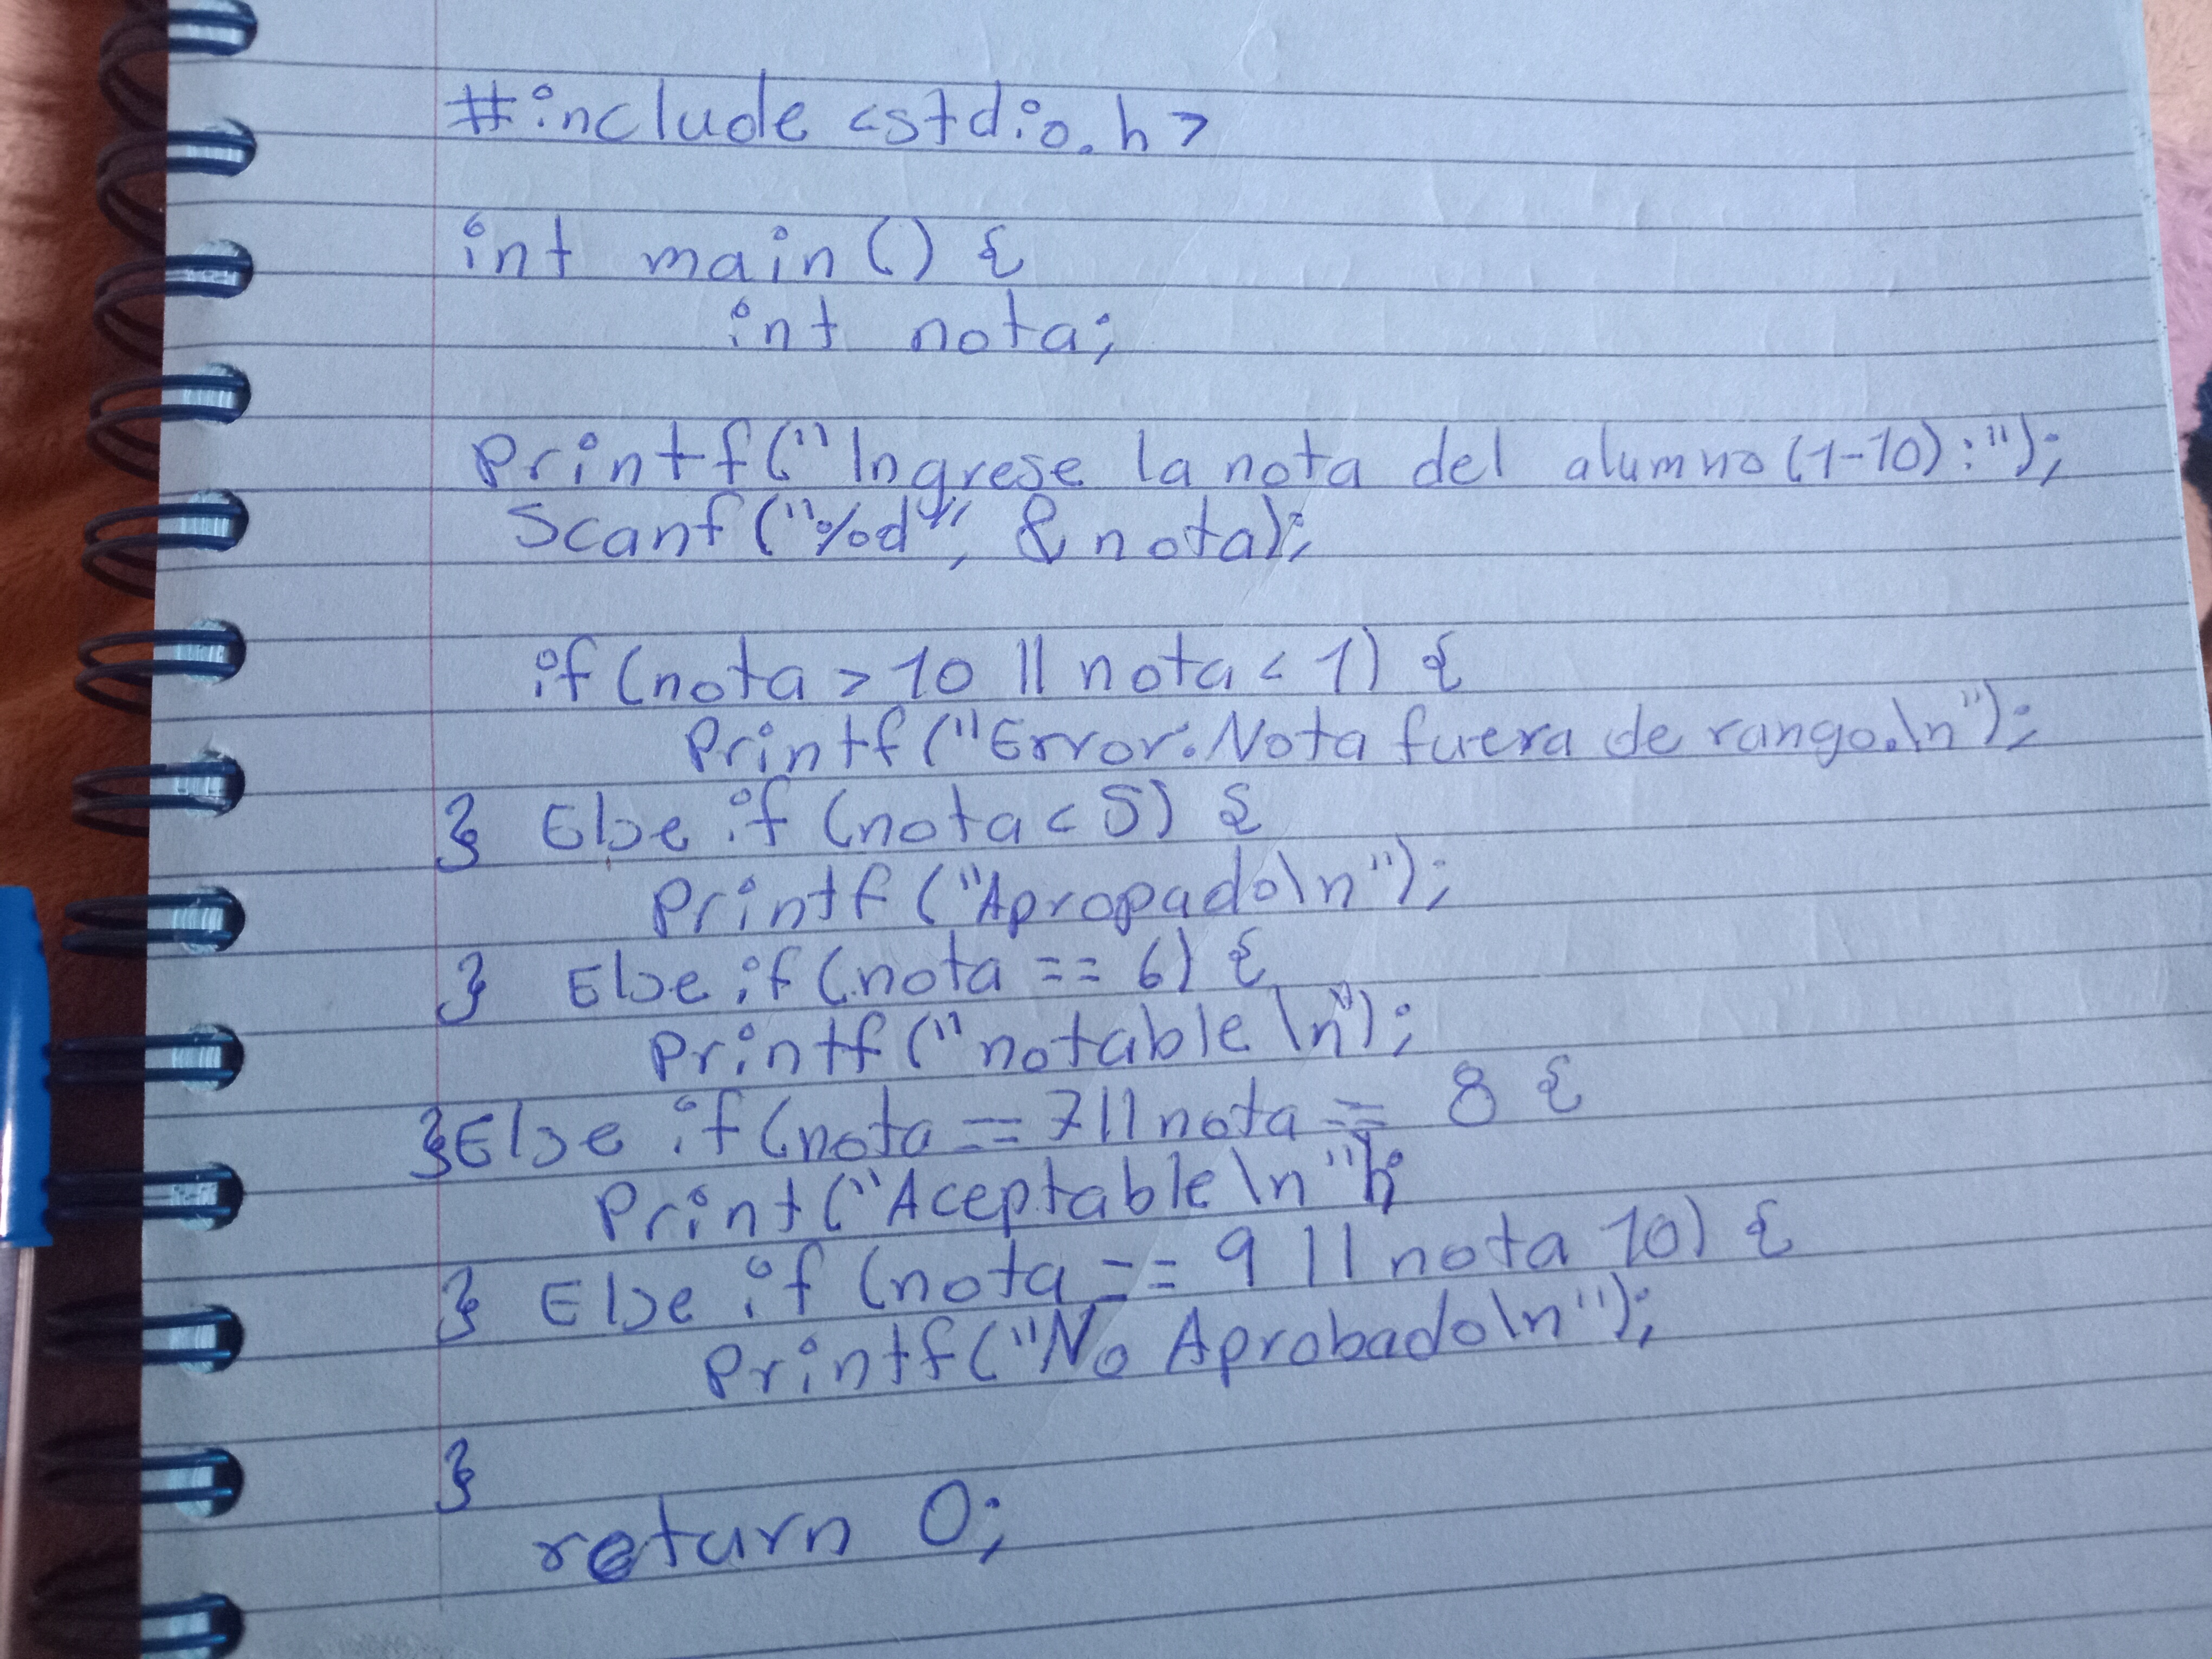 #include <stdio.h>
int main() {
int nota;
Printf("Ingrese la nota del alumno (1-10):");
Scanf("%d", &nota);
if (nota > 10 || nota < 1) {
Printf("Error: Nota fuera de rango.\n");
} Else if (nota < 5) {
Printf("Apropado\n");
} Else if (nota == 6) {
Printf("notable \n");
}Else if (nota == 7 || nota == 8 {
Print("Aceptable \n");
} Else if (nota == 9 || nota 10) {
Printf("No Aprobado\n");
}
return 0;